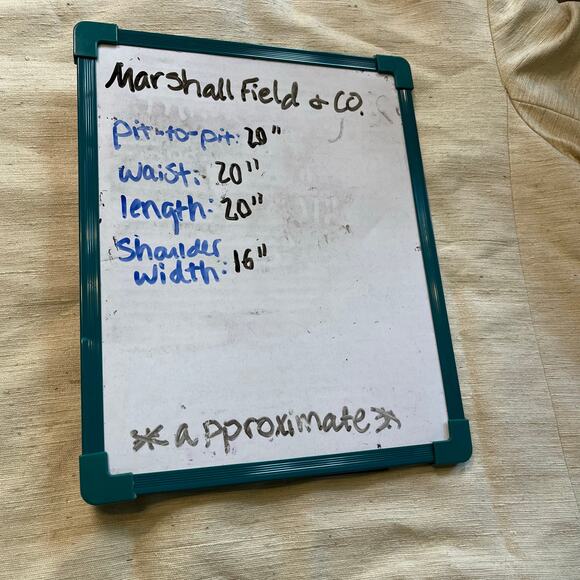 Marshall Field & CO.
pit-to-pit: 20"
waist: 20"
length: 20"
Shoulder
width: 16"
* approximate *